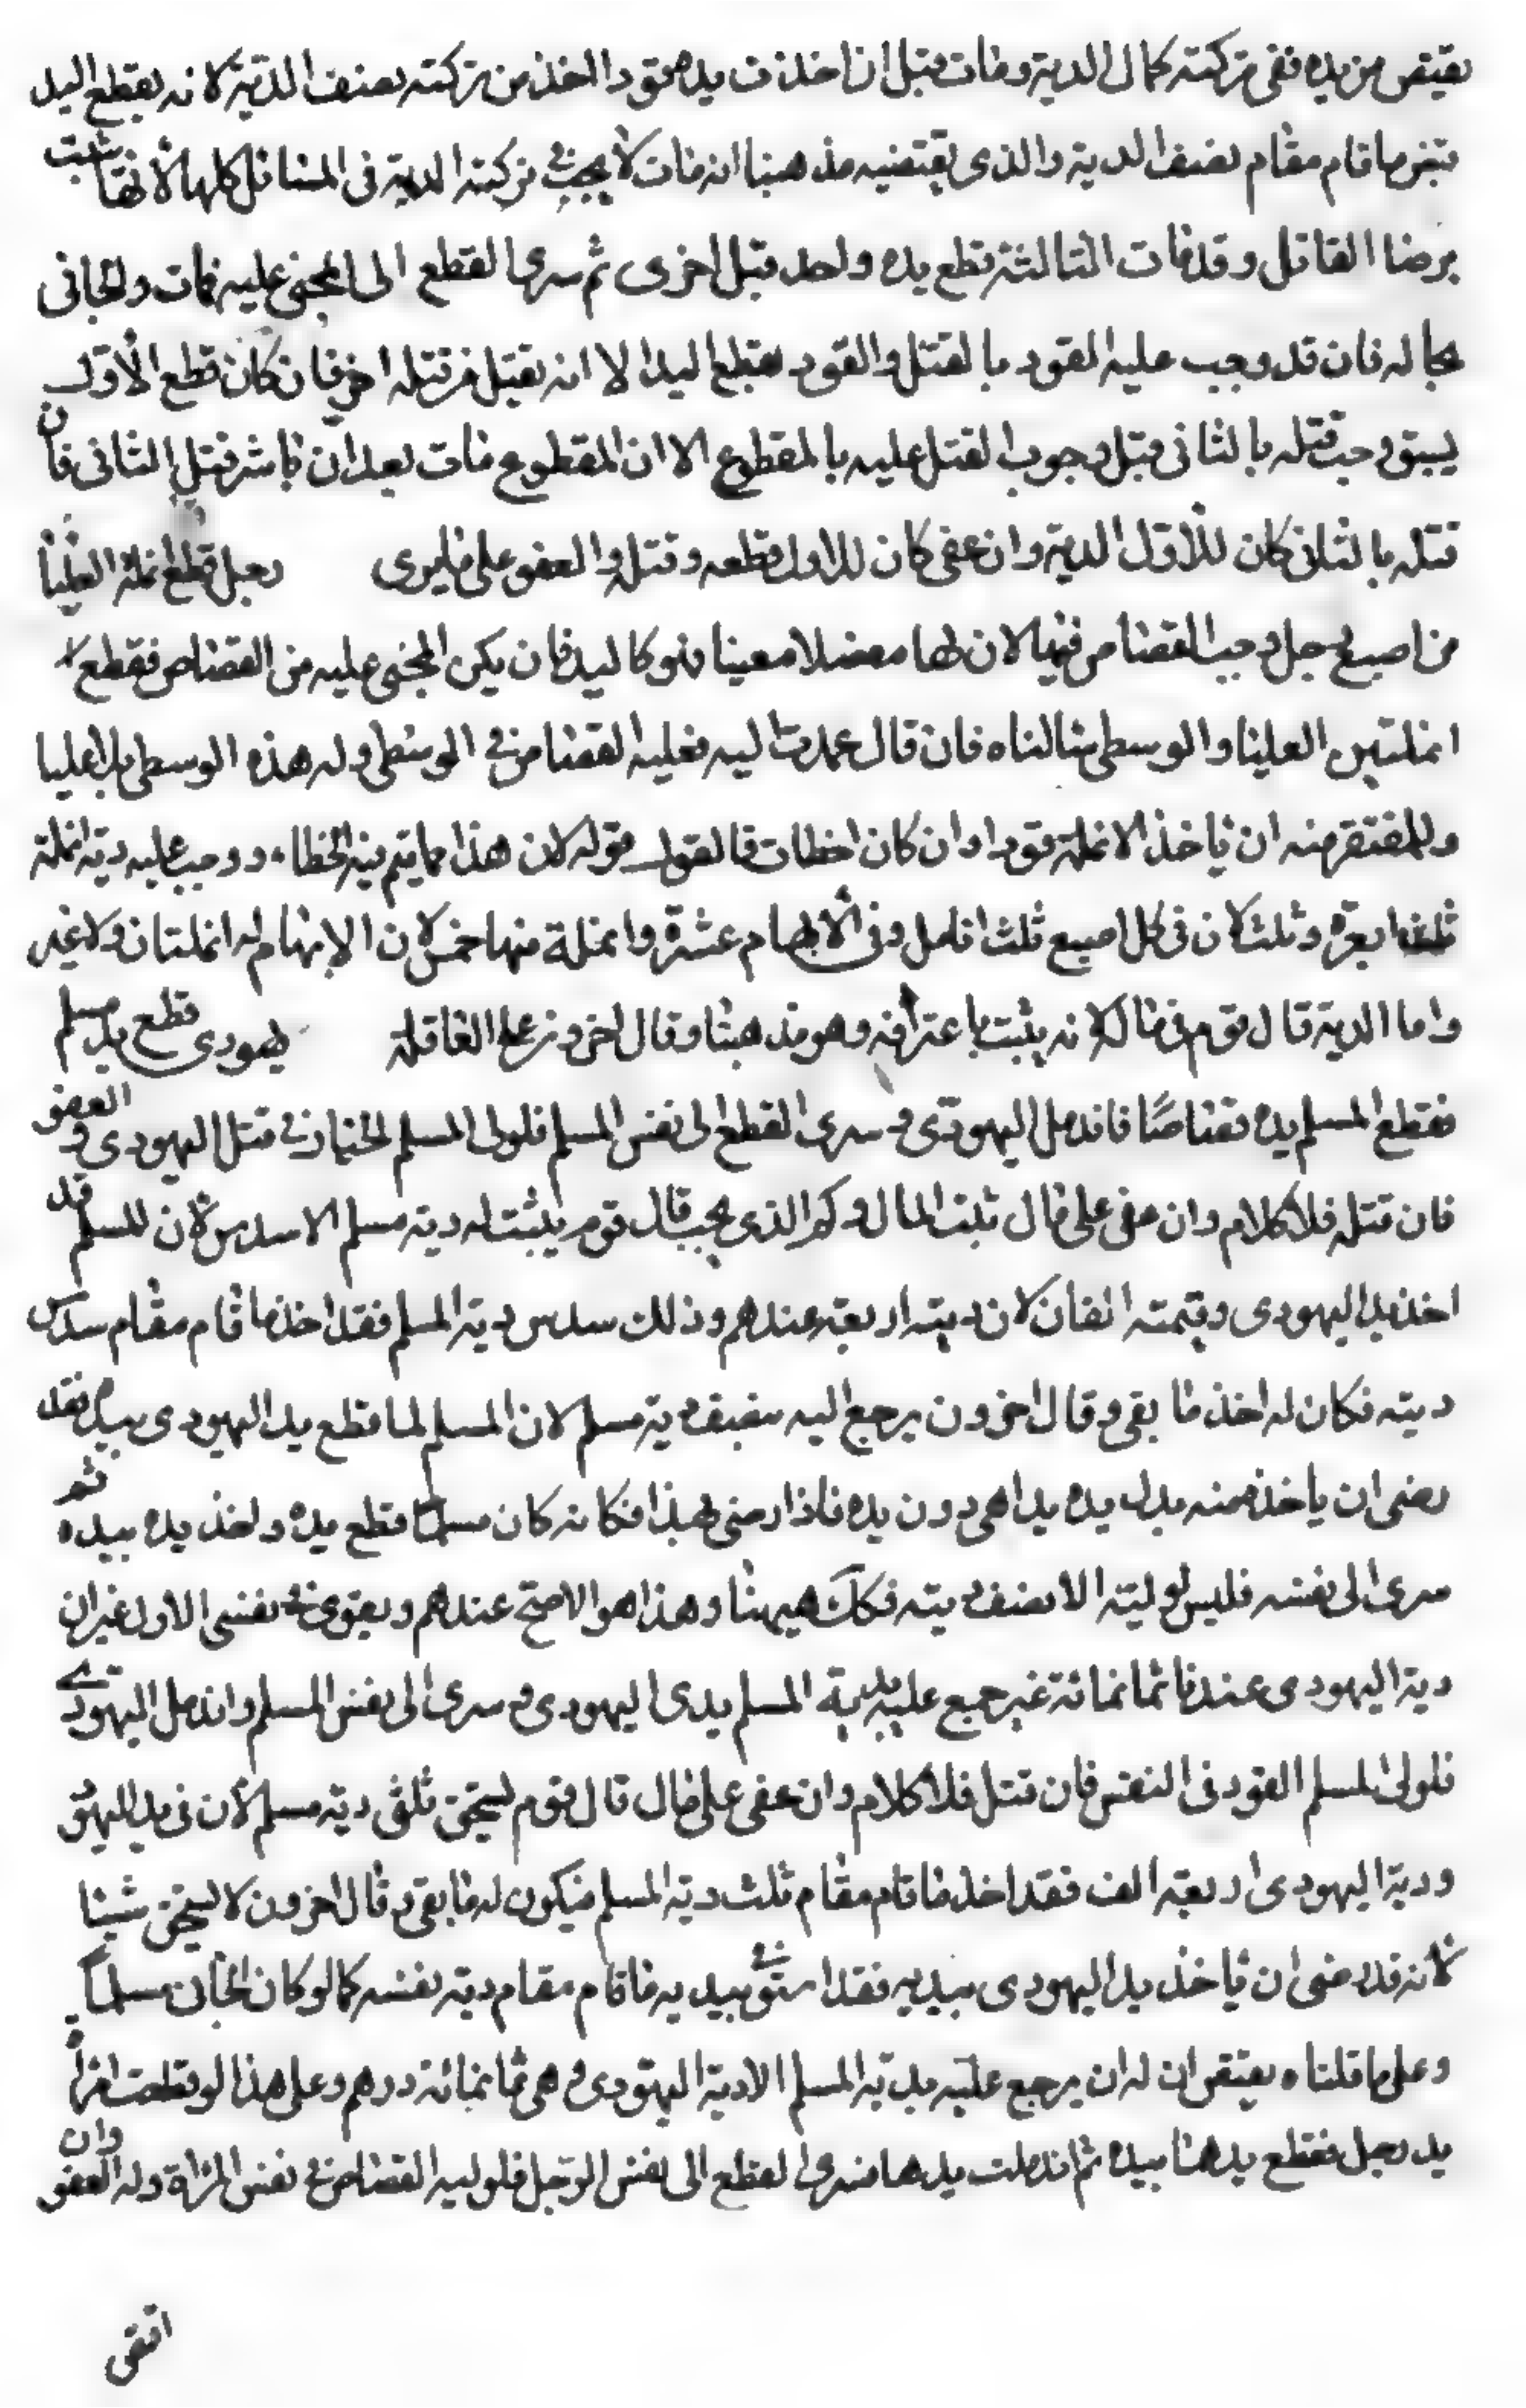 يقتص من يده ففى تركته كمال الدية ومات قبل ان اخذت يده قودا اخذ من تركته نصف الدية لانه بقطع اليد
قبض ما قام مقام نصف الدية والذى يقتضيه مذهبنا انه مات لا يجب فى تركته الدية فى المسائل كلها لأنها تثبت
برضا القاتل وقد فات الثالثة قطع يده واحد قتل اخرى ثم سرى القطع الى المجنى عليه فمات والجانى
بحاله فان قد وجب عليه القود بالقتل والقود بقطع اليد الا انه يقتل من قتله اخر فان كان قطع الأول
يسبق وجب قتله بالثانى قبل وجوب القتل عليه بالمقطوع الا ان المقطوع مات بعد ان باشر قتل الثانى فان
قتله بالثانى كان للأول الدية وان عفى كان للاول قطعه وقتله والعفو على ما يرى رجل قطع انملة العليا
من اصبع رجل وجب القصاص فيها لان لها مفصلا معينا فهو كاليد فان يكن المجنى عليه من القصاص فقطع
انملتين العليا والوسطى سالناه فان قال عمدت اليه فعليه القصاص فى الوسطى وله هذه الوسطى بلا عليا
وللمفتقر منه ان ياخذ الانملة قودا وان كان اخطات فالقول قوله لان هذا مما يتم فيه الخطاء ووجب عليه دية انملة
ثلثة ابعرة وثلث لان فى كل اصبع ثلث انامل وفى الأبهام عشرة وانملة منها خمس لان الإبهام له انملتان ولا غير
واما الدية قال قوم فى ماله لانه يثبت باعترافه وهو مذهبنا وقال اخرون على العاقلة يهودى قطع يد مسلم
فقطع المسلم يده قصاصًا فاندمل اليهودى وسرى القطع الى نفس المسلم فلولى المسلم الخيار فى قتل اليهودى والعفو
فان قتله فلا كلام وان عفى على مال ثبت المال وكم الذى يجب قال قوم يثبت له دية مسلم الا سدس لان للمسلم قد
اخذ يد اليهودى وقيمته الفان لان ديته اربعة عندهم وذلك سدس دية المسلم فقد اخذ ما قام مقام سدس
ديته فكان له اخذ ما بقى وقال اخرون يرجع اليه بنصف دية مسلم لان المسلم لما قطع يد اليهودى بيده فقد
رضى ان ياخذ منه بدل يده يدا هى دون يده فاذا رضى بهذا فكانه كان مسلما قطع يده واخذ يده بيده ثم
سرى الى نفسه فليس لوليه الا نصف ديته فكك هيهنا وهذا هو الاصح عندهم ويقوى فى نفسى الاول غير ان
دية اليهودى عندنا ثمانمائة غير جميع عليه بدية المسلم يدى اليهودى وسرى الى نفس المسلم واندمل اليهودى
فلولى المسلم القود فى النفس فان قتل فلا كلام وان عفى على مال قال قوم يستحق ثلثى دية مسلم لأن فى يد اليهود
ودية اليهودى اربعة الف فقد اخذ ما قام مقام ثلث دية المسلم فيكون له ما بقى وقال اخرون لا يستحق شيئا
لانه قد رضى ان ياخذ يد اليهودى بيديه فقد استوفى بيديه ما قام مقام دية نفسه كما لو كان الجانى مسلماً
وعلى ما قلناه يقتضى ان له ان يرجع عليه بدية المسلم الا دية اليهودى وهى ثمانمائة درهم وعلى هذا لو قطعت امرأ
يد رجل فقطع يدها بيده ثم اندملت يدها فسرى القطع الى نفس الرجل فلوليه القصاص فى نفس المراة وله العفو وان
اتقى